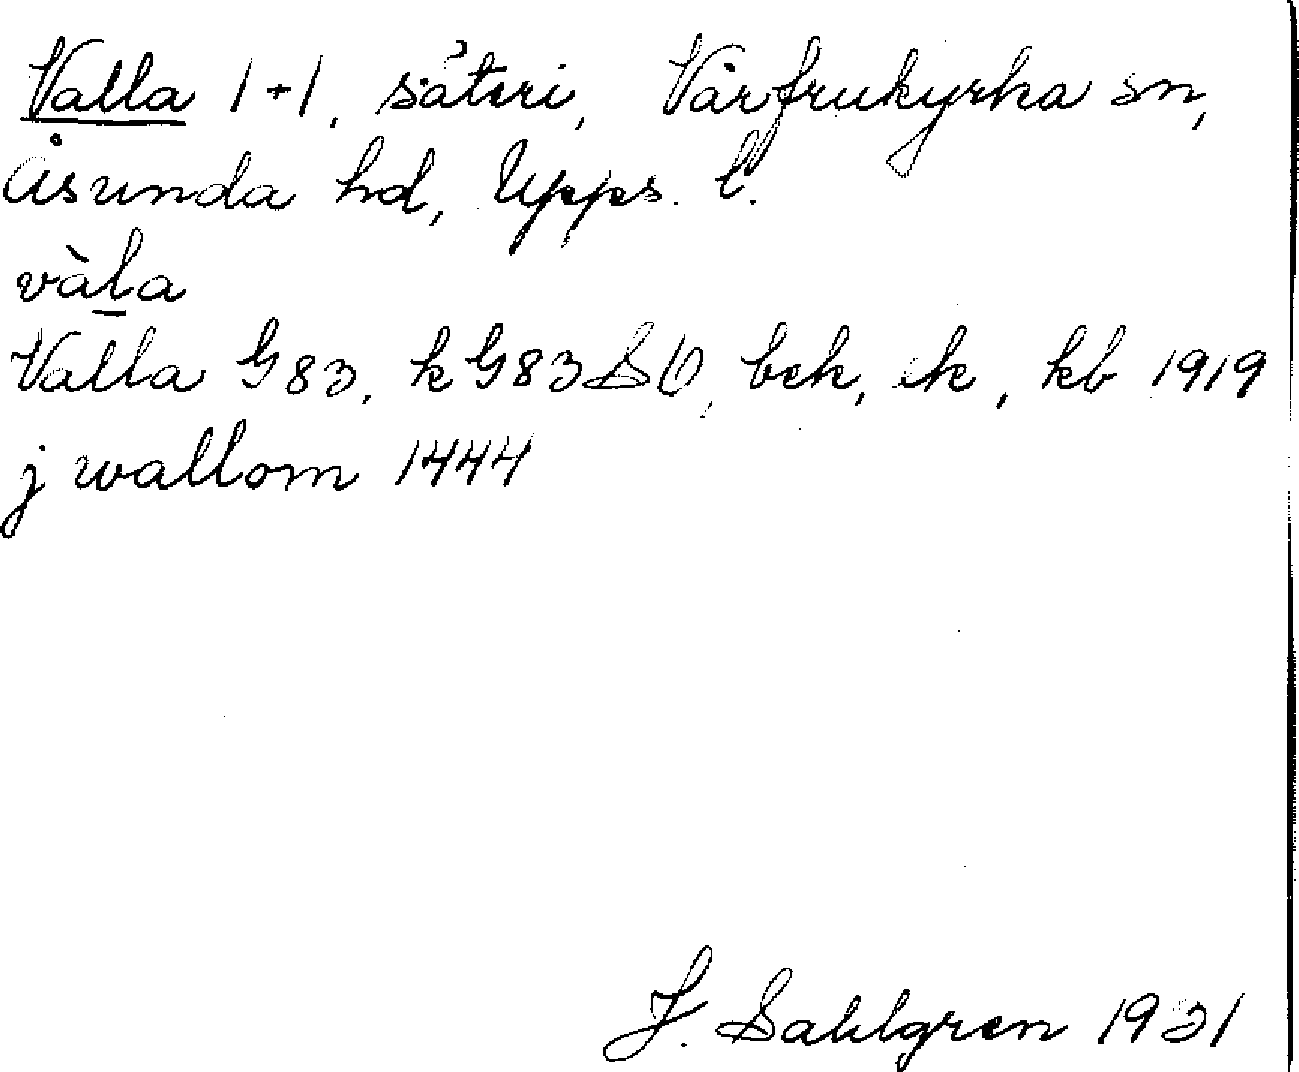 Valla 1+1, säteri, Vårfrukyrka sn,
Åsunda hd, Upps. l.
vàla
Valla G83, kG83 SÖ, bek, ek, kb 1919
j wallom 1444
J. Sahlgren 1931